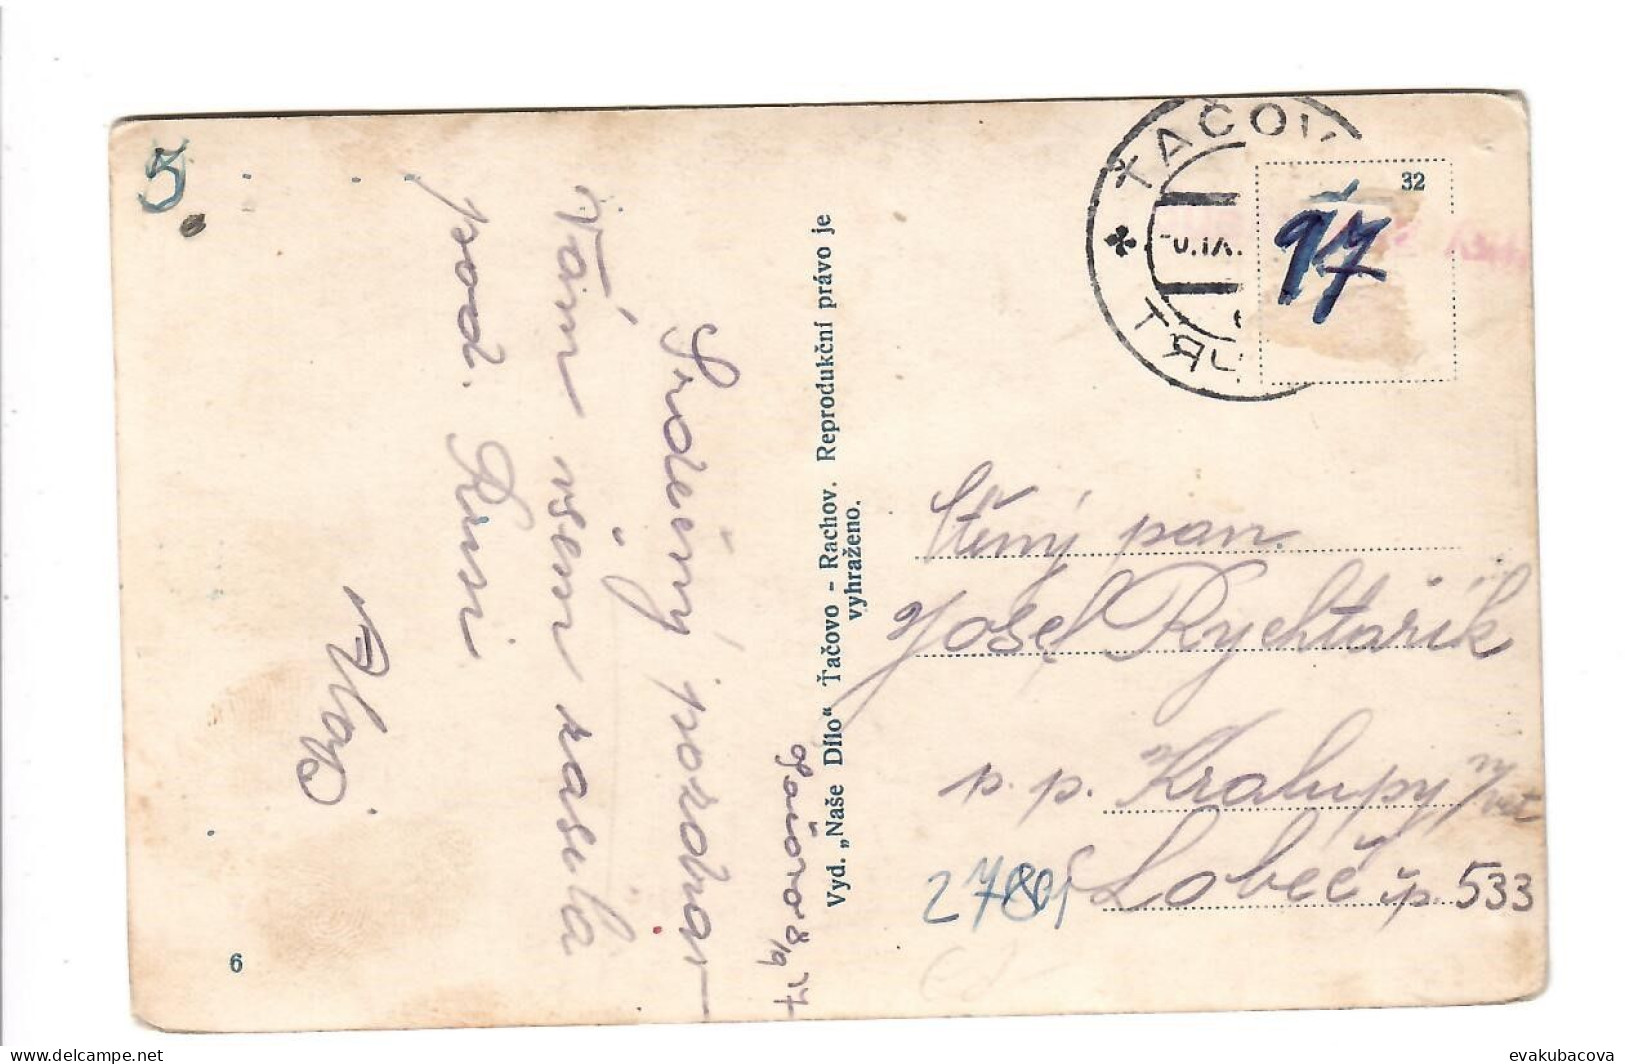 5.
Srdečný pozdrav
Vám všem zasílá
pod. Rusi
Ťačovo 8/9 17
Vyd. „Naše Dílo“ Ťačovo - Rachov. Reprodukční právo je
vyhraženo.
ŤAČOV
32
17
Ctěný pan
Josef Rychtařík
p. p. Kralupy n/Vlt
Lobeč čp. 533
278
6
www.delcampe.net
evakubacova